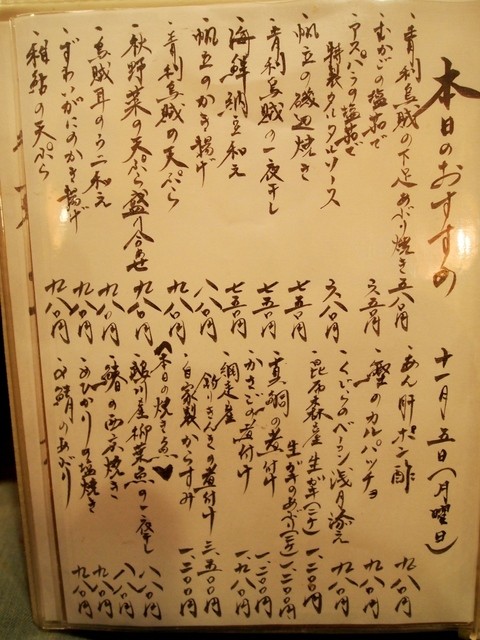 本日のおすすめ 十一月五日(月曜日)
・青利烏賊の下足あぶり焼き 五八〇円
・むかごの塩茹で 六五〇円
・アスパラの塩茹で
特製タルタルソース 六八〇円
・帆立の磯辺焼き 七五〇円
・青利烏賊の一夜干し 七五〇円
・海鮮納豆和え 七五〇円
・帆立のかき揚げ 八八〇円
・青利烏賊の天ぷら 九八〇円
・秋野菜の天ぷら盛り合せ 九八〇円
・烏賊耳のうに和え 九八〇円
・ずわいがにのかき揚げ 九八〇円
・稚鮎の天ぷら 九八〇円
・あん肝ポン酢 九八〇円
・鰹のカルパッチョ 九八〇円
・くじらのベーコン 浅月添え 九八〇円
・昆布森産 生がき(二ケ) 一、二〇〇円
生がきのあぶり(二ケ) 一、二〇〇円
・真鯛の煮付け 一、二〇〇円
・かさごの煮付け 一、九八〇円
・網走産
釣りきんきの煮付け 三、五〇〇円
・自家製からすみ 一、二〇〇円
〈本日の焼き魚♥
・銀川産柳葉魚の一夜干し 八八〇円
・鰆の西京焼き 八八〇円
・めひかりの塩焼き 九八〇円
・〆鯖のあぶり 九八〇円